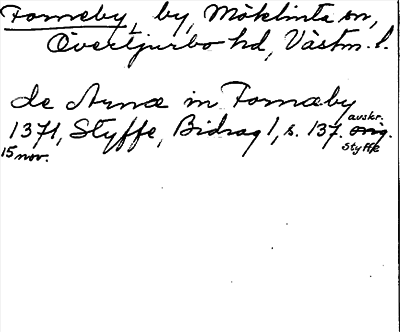 Forneby, by, Möklinta sn,
Övertjurbo hd, Västm. l.
de Arnæ in Fornæby
1371, Styffe, Bidrag 1, s. 137. avskr. orig.
15 nov. Styffe